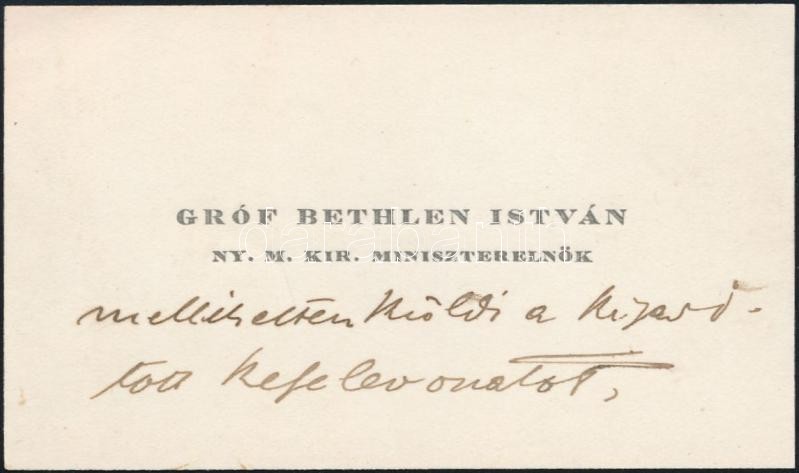 GRÓF BETHLEN ISTVÁN
NY. M. KIR. MINISZTERELNÖK
mellékelten küldi a kijaví-
tott kefelevonatot,